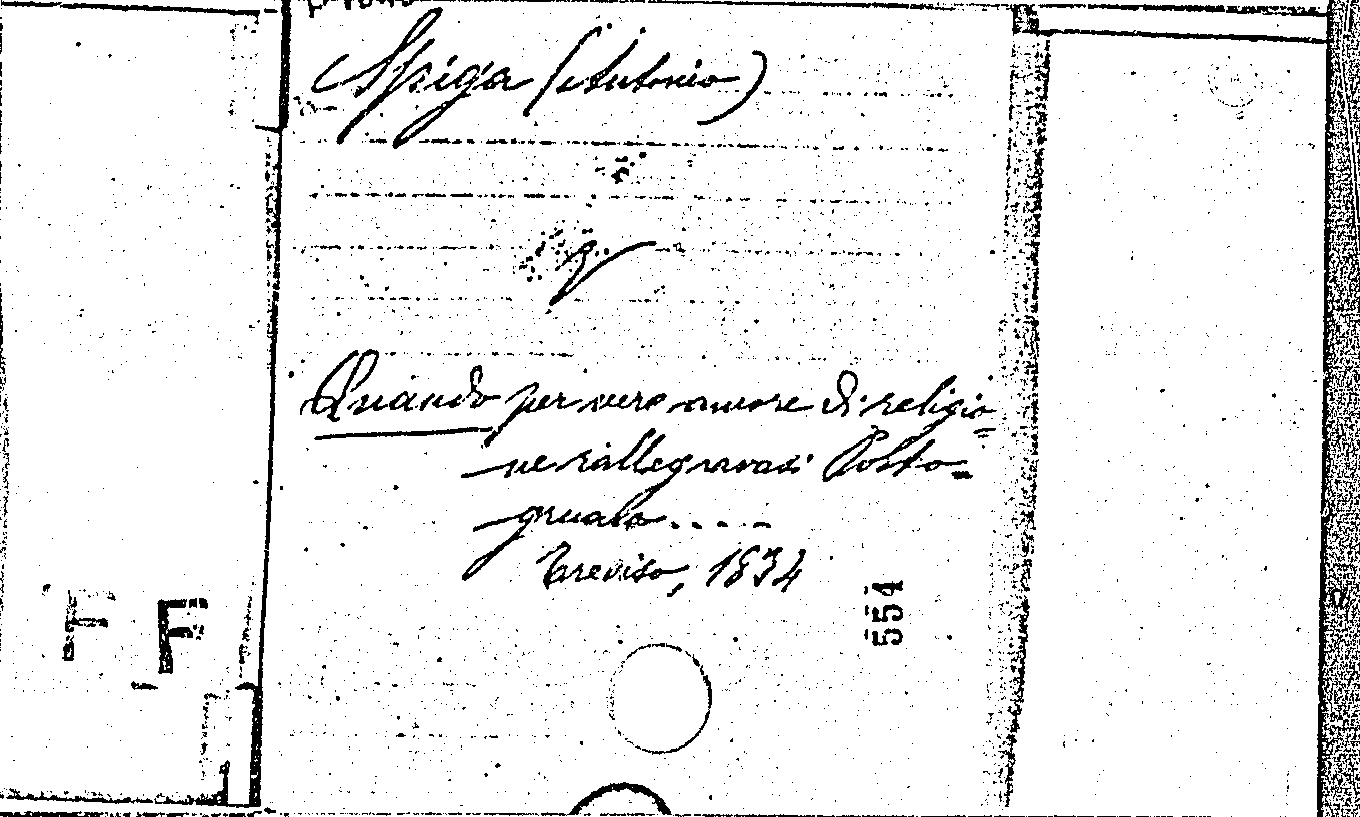 Spiga (Antonio)
Quando per vero amore di religio=
ne rallegravasi Porto=
gruaro.....
Treviso, 1834
554
F F